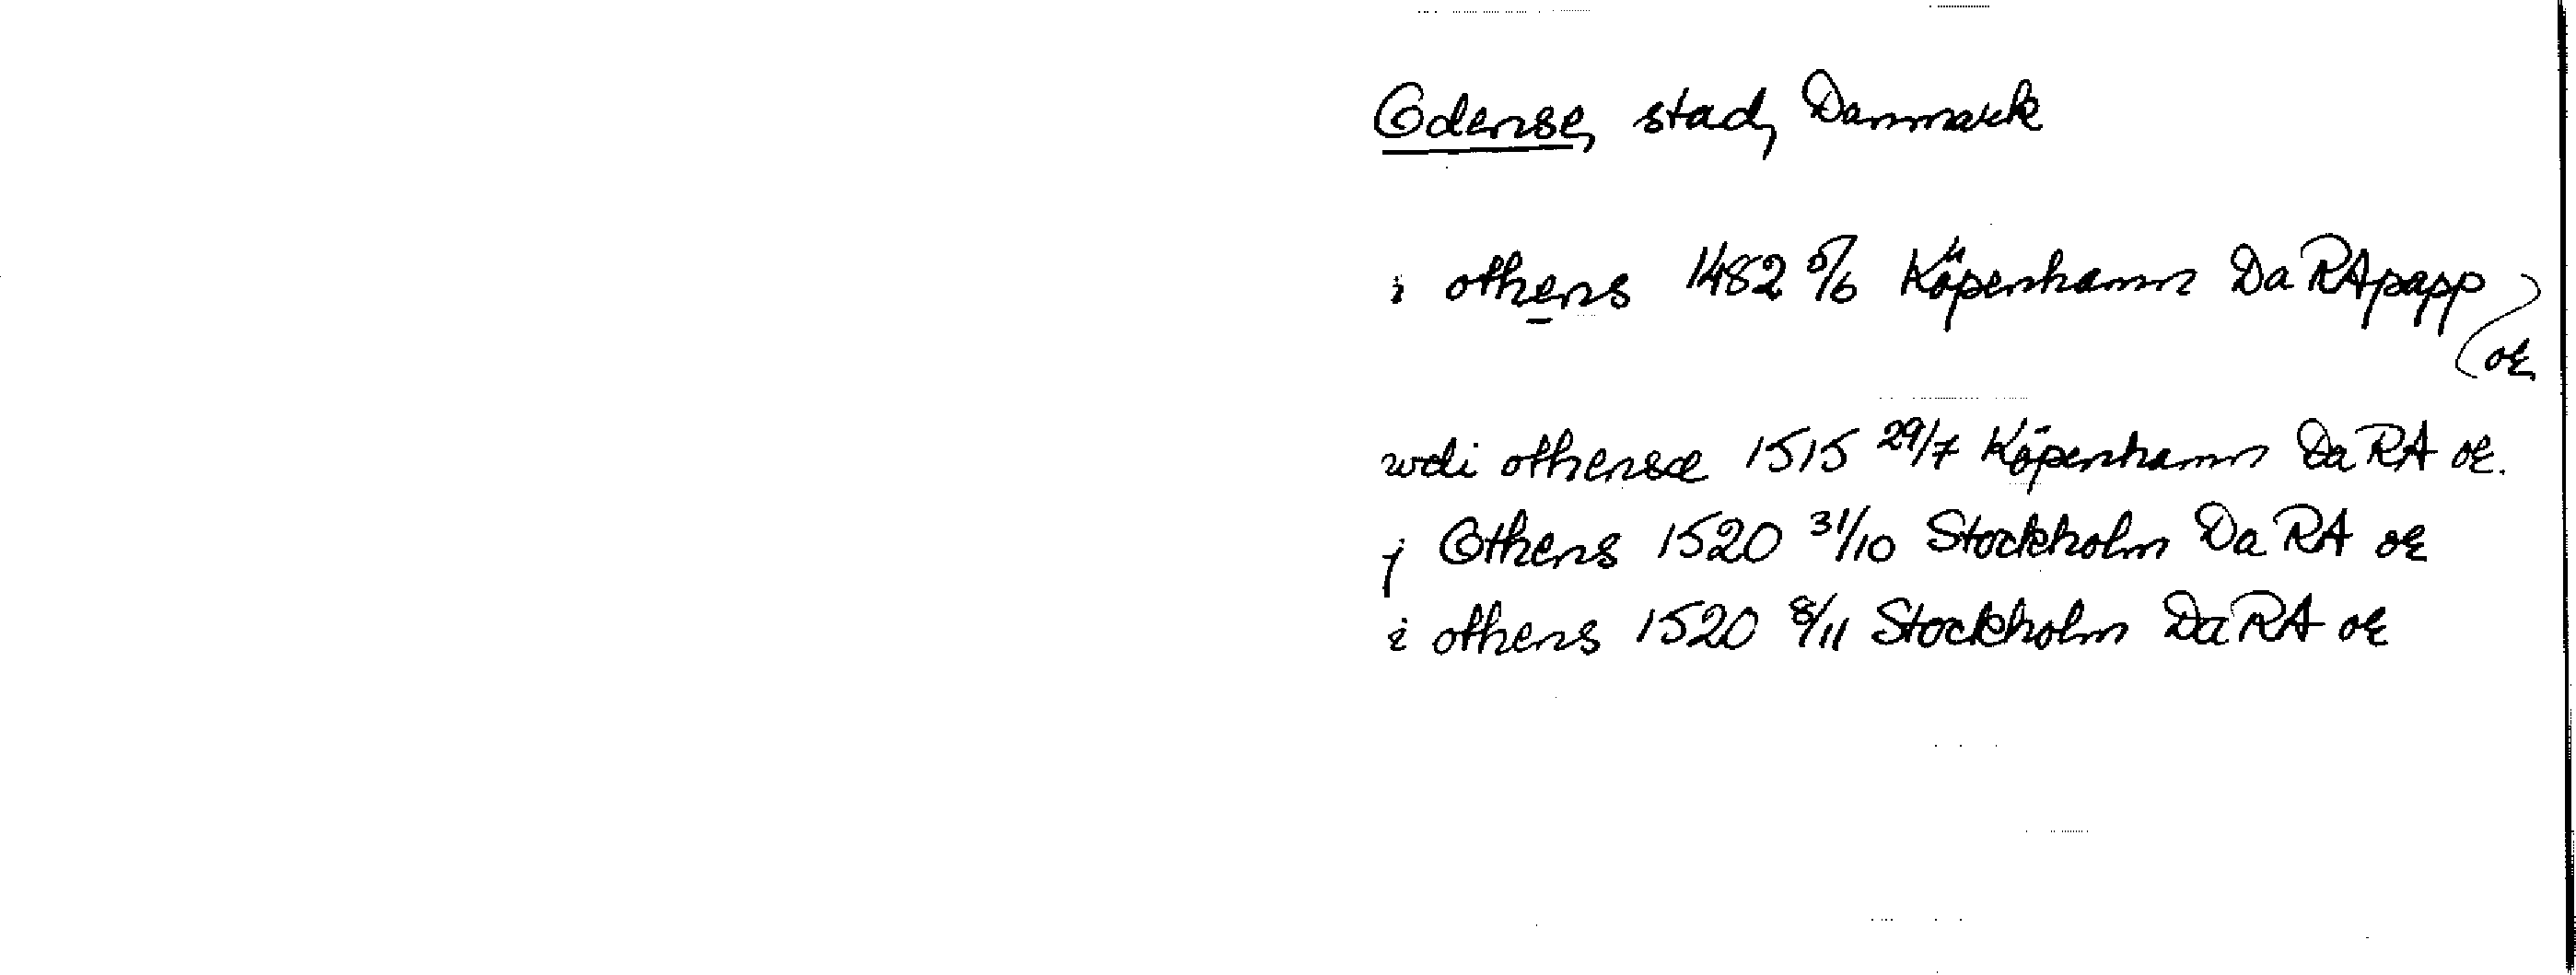 Odense, stad, Danmark
i othens 1482 5/6 Köpenhamn DaRApapp
or
wdi othensæ 1515 29/7 Köpenhamn DaRA or.
j Othens 1520 31/10 Stockholm DaRA or
i othens 1520 8/11 Stockholm DaRA or